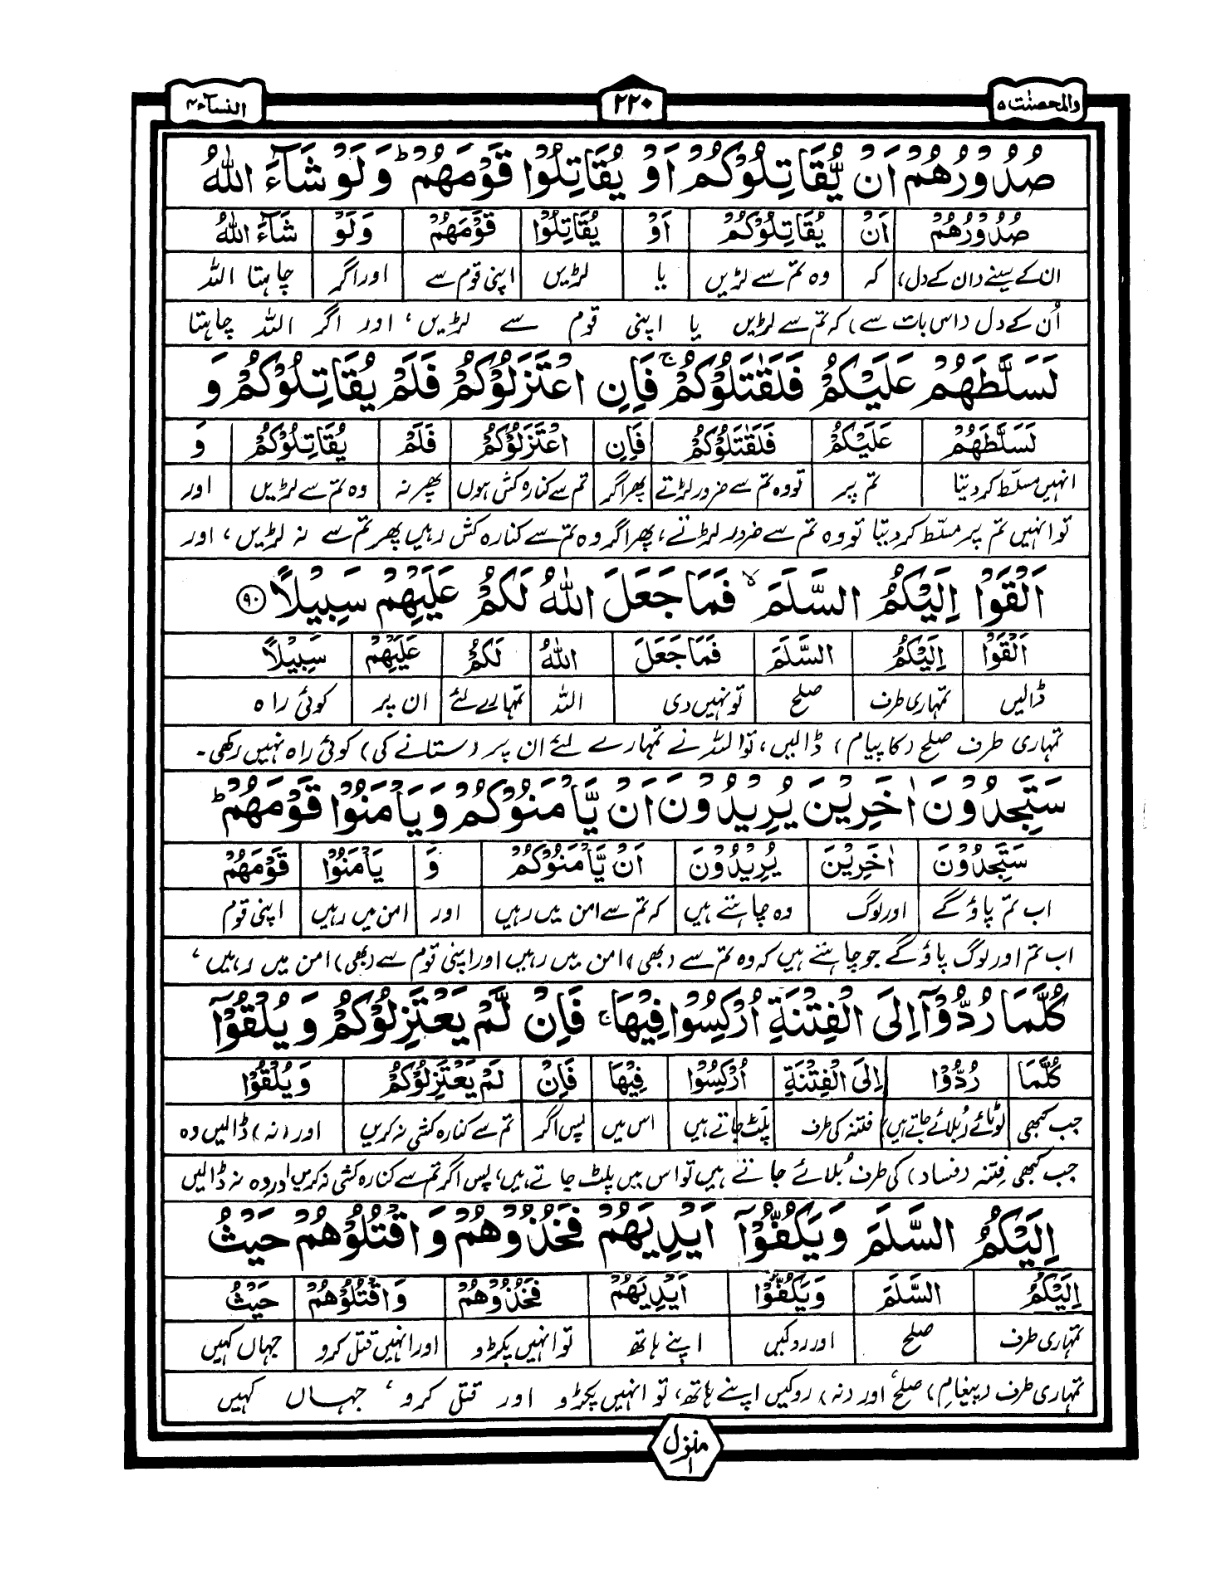 والمحصنٰت ۵ ۲۲۰ النسآء ۴
صُدُوْرُهُمْ اَنْ یُّقَاتِلُوْكُمْ اَوْ یُقَاتِلُوْا قَوْمَهُمْ ؕ وَلَوْ شَآءَ اللّٰهُ
صُدُوْرُهُمْ اَنْ یُقَاتِلُوْكُمْ اَوْ یُقَاتِلُوْا قَوْمَهُمْ وَلَوْ شَآءَ اللّٰهُ
ان کے سینے (ان کے دل) کہ وہ تم سے لڑیں یا لڑیں اپنی قوم سے اور اگر چاہتا اللہ
اُن کے دل (اس بات سے) کہ تم سے لڑیں یا اپنی قوم سے لڑیں، اور اگر اللہ چاہتا
لَسَلَّطَهُمْ عَلَیْكُمْ فَلَقٰتَلُوْكُمْ ۚ فَاِنِ اعْتَزَلُوْكُمْ فَلَمْ یُقَاتِلُوْكُمْ وَ
لَسَلَّطَهُمْ عَلَیْكُمْ فَلَقٰتَلُوْكُمْ فَاِنِ اعْتَزَلُوْكُمْ فَلَمْ یُقَاتِلُوْكُمْ وَ
انہیں مسلّط کر دیتا تم پر تو وہ تم سے ضرور لڑتے پھر اگر تم سے کنارہ کش ہوں پھر نہ وہ تم سے لڑیں اور
تو انہیں تم پر مسلّط کر دیتا تو وہ تم سے ضرور لڑتے، پھر اگر وہ تم سے کنارہ کش رہیں پھر تم سے نہ لڑیں، اور
اَلْقَوْا اِلَیْكُمُ السَّلَمَ ۙ فَمَا جَعَلَ اللّٰهُ لَكُمْ عَلَیْهِمْ سَبِیْلًا ﴿۹۰﴾
اَلْقَوْا اِلَیْكُمُ السَّلَمَ فَمَا جَعَلَ اللّٰهُ لَكُمْ عَلَیْهِمْ سَبِیْلًا
ڈالیں تمہاری طرف صلح تو نہیں دی اللہ تمہارے لئے ان پر کوئی راہ
تمہاری طرف صلح (کا پیام) ڈالیں، تو اللہ نے تمہارے لئے ان پر (ستانے کی) کوئی راہ نہیں رکھی۔
سَتَجِدُوْنَ اٰخَرِیْنَ یُرِیْدُوْنَ اَنْ یَّاْمَنُوْكُمْ وَیَاْمَنُوْا قَوْمَهُمْ ؕ
سَتَجِدُوْنَ اٰخَرِیْنَ یُرِیْدُوْنَ اَنْ یَّاْمَنُوْكُمْ وَ یَاْمَنُوْا قَوْمَهُمْ
اب تم پاؤ گے اور لوگ وہ چاہتے ہیں کہ تم سے امن میں رہیں اور امن میں رہیں اپنی قوم
اب تم اور لوگ پاؤ گے جو چاہتے ہیں کہ وہ تم سے (بھی) امن میں رہیں اور اپنی قوم سے (بھی) امن میں رہیں،
كُلَّمَا رُدُّوْۤا اِلَی الْفِتْنَةِ اُرْكِسُوْا فِیْهَا ۚ فَاِنْ لَّمْ یَعْتَزِلُوْكُمْ وَیُلْقُوْۤا
كُلَّمَا رُدُّوْا اِلَی الْفِتْنَةِ اُرْكِسُوْا فِیْهَا فَاِنْ لَمْ یَعْتَزِلُوْكُمْ وَیُلْقُوْا
جب کبھی لوٹائے (بلائے جاتے ہیں) فتنہ کی طرف پلٹ جاتے ہیں اس میں پس اگر تم سے کنارہ کشی نہ کریں اور (نہ) ڈالیں وہ
جب کبھی فتنہ (فساد) کی طرف بُلائے جاتے ہیں تو اس میں پلٹ جاتے ہیں، پس اگر تم سے کنارہ کشی نہ کریں اور وہ نہ ڈالیں
اِلَیْكُمُ السَّلَمَ وَیَكُفُّوْۤا اَیْدِیَهُمْ فَخُذُوْهُمْ وَاقْتُلُوْهُمْ حَیْثُ
اِلَیْكُمُ السَّلَمَ وَیَكُفُّوْا اَیْدِیَهُمْ فَخُذُوْهُمْ وَاقْتُلُوْهُمْ حَیْثُ
تمہاری طرف صلح اور روکیں اپنے ہاتھ تو انہیں پکڑو اور انہیں قتل کرو جہاں کہیں
تمہاری طرف (پیغام) صلح، اور (نہ) روکیں اپنے ہاتھ، تو انہیں پکڑو اور قتل کرو، جہاں کہیں
منزل ۱